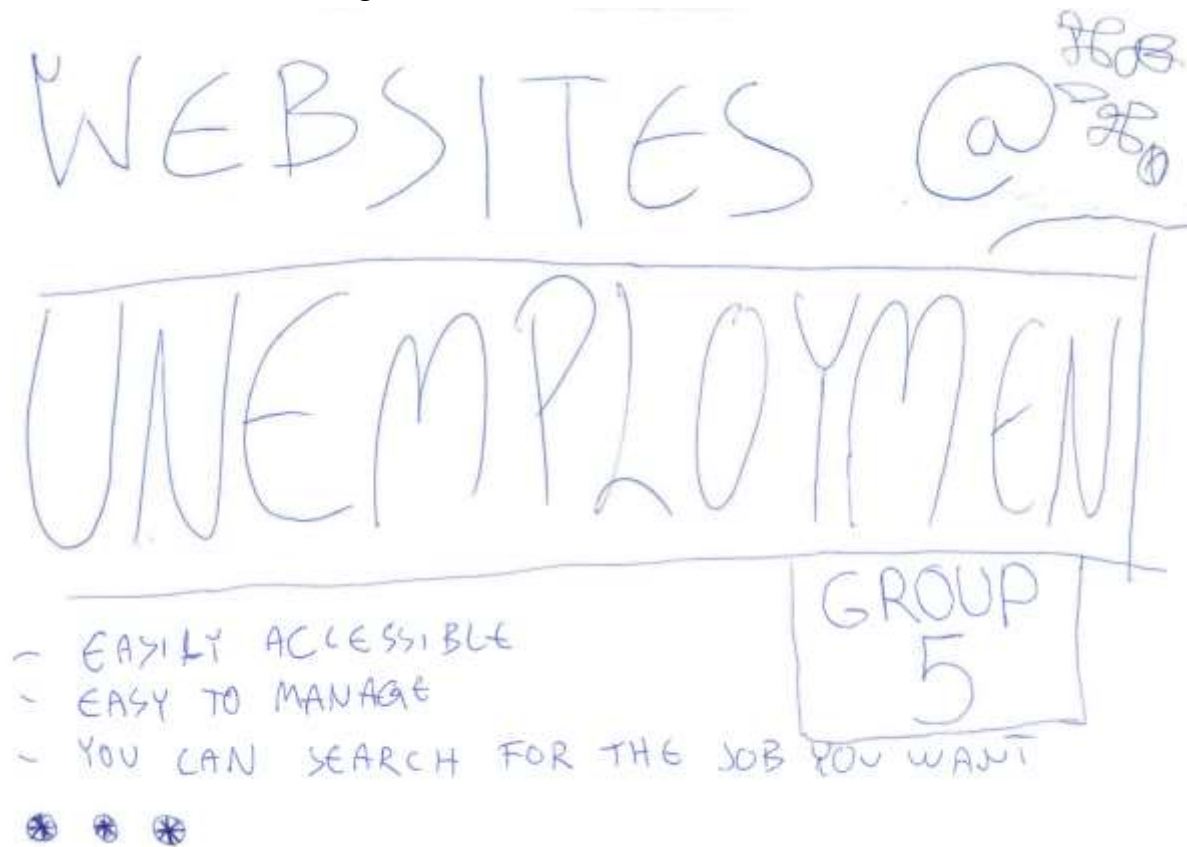 WEBSITES @
UNEMPLOYMENT
GROUP
5
- EASILY ACCESSIBLE
- EASY TO MANAGE
- YOU CAN SEARCH FOR THE JOB YOU WANT